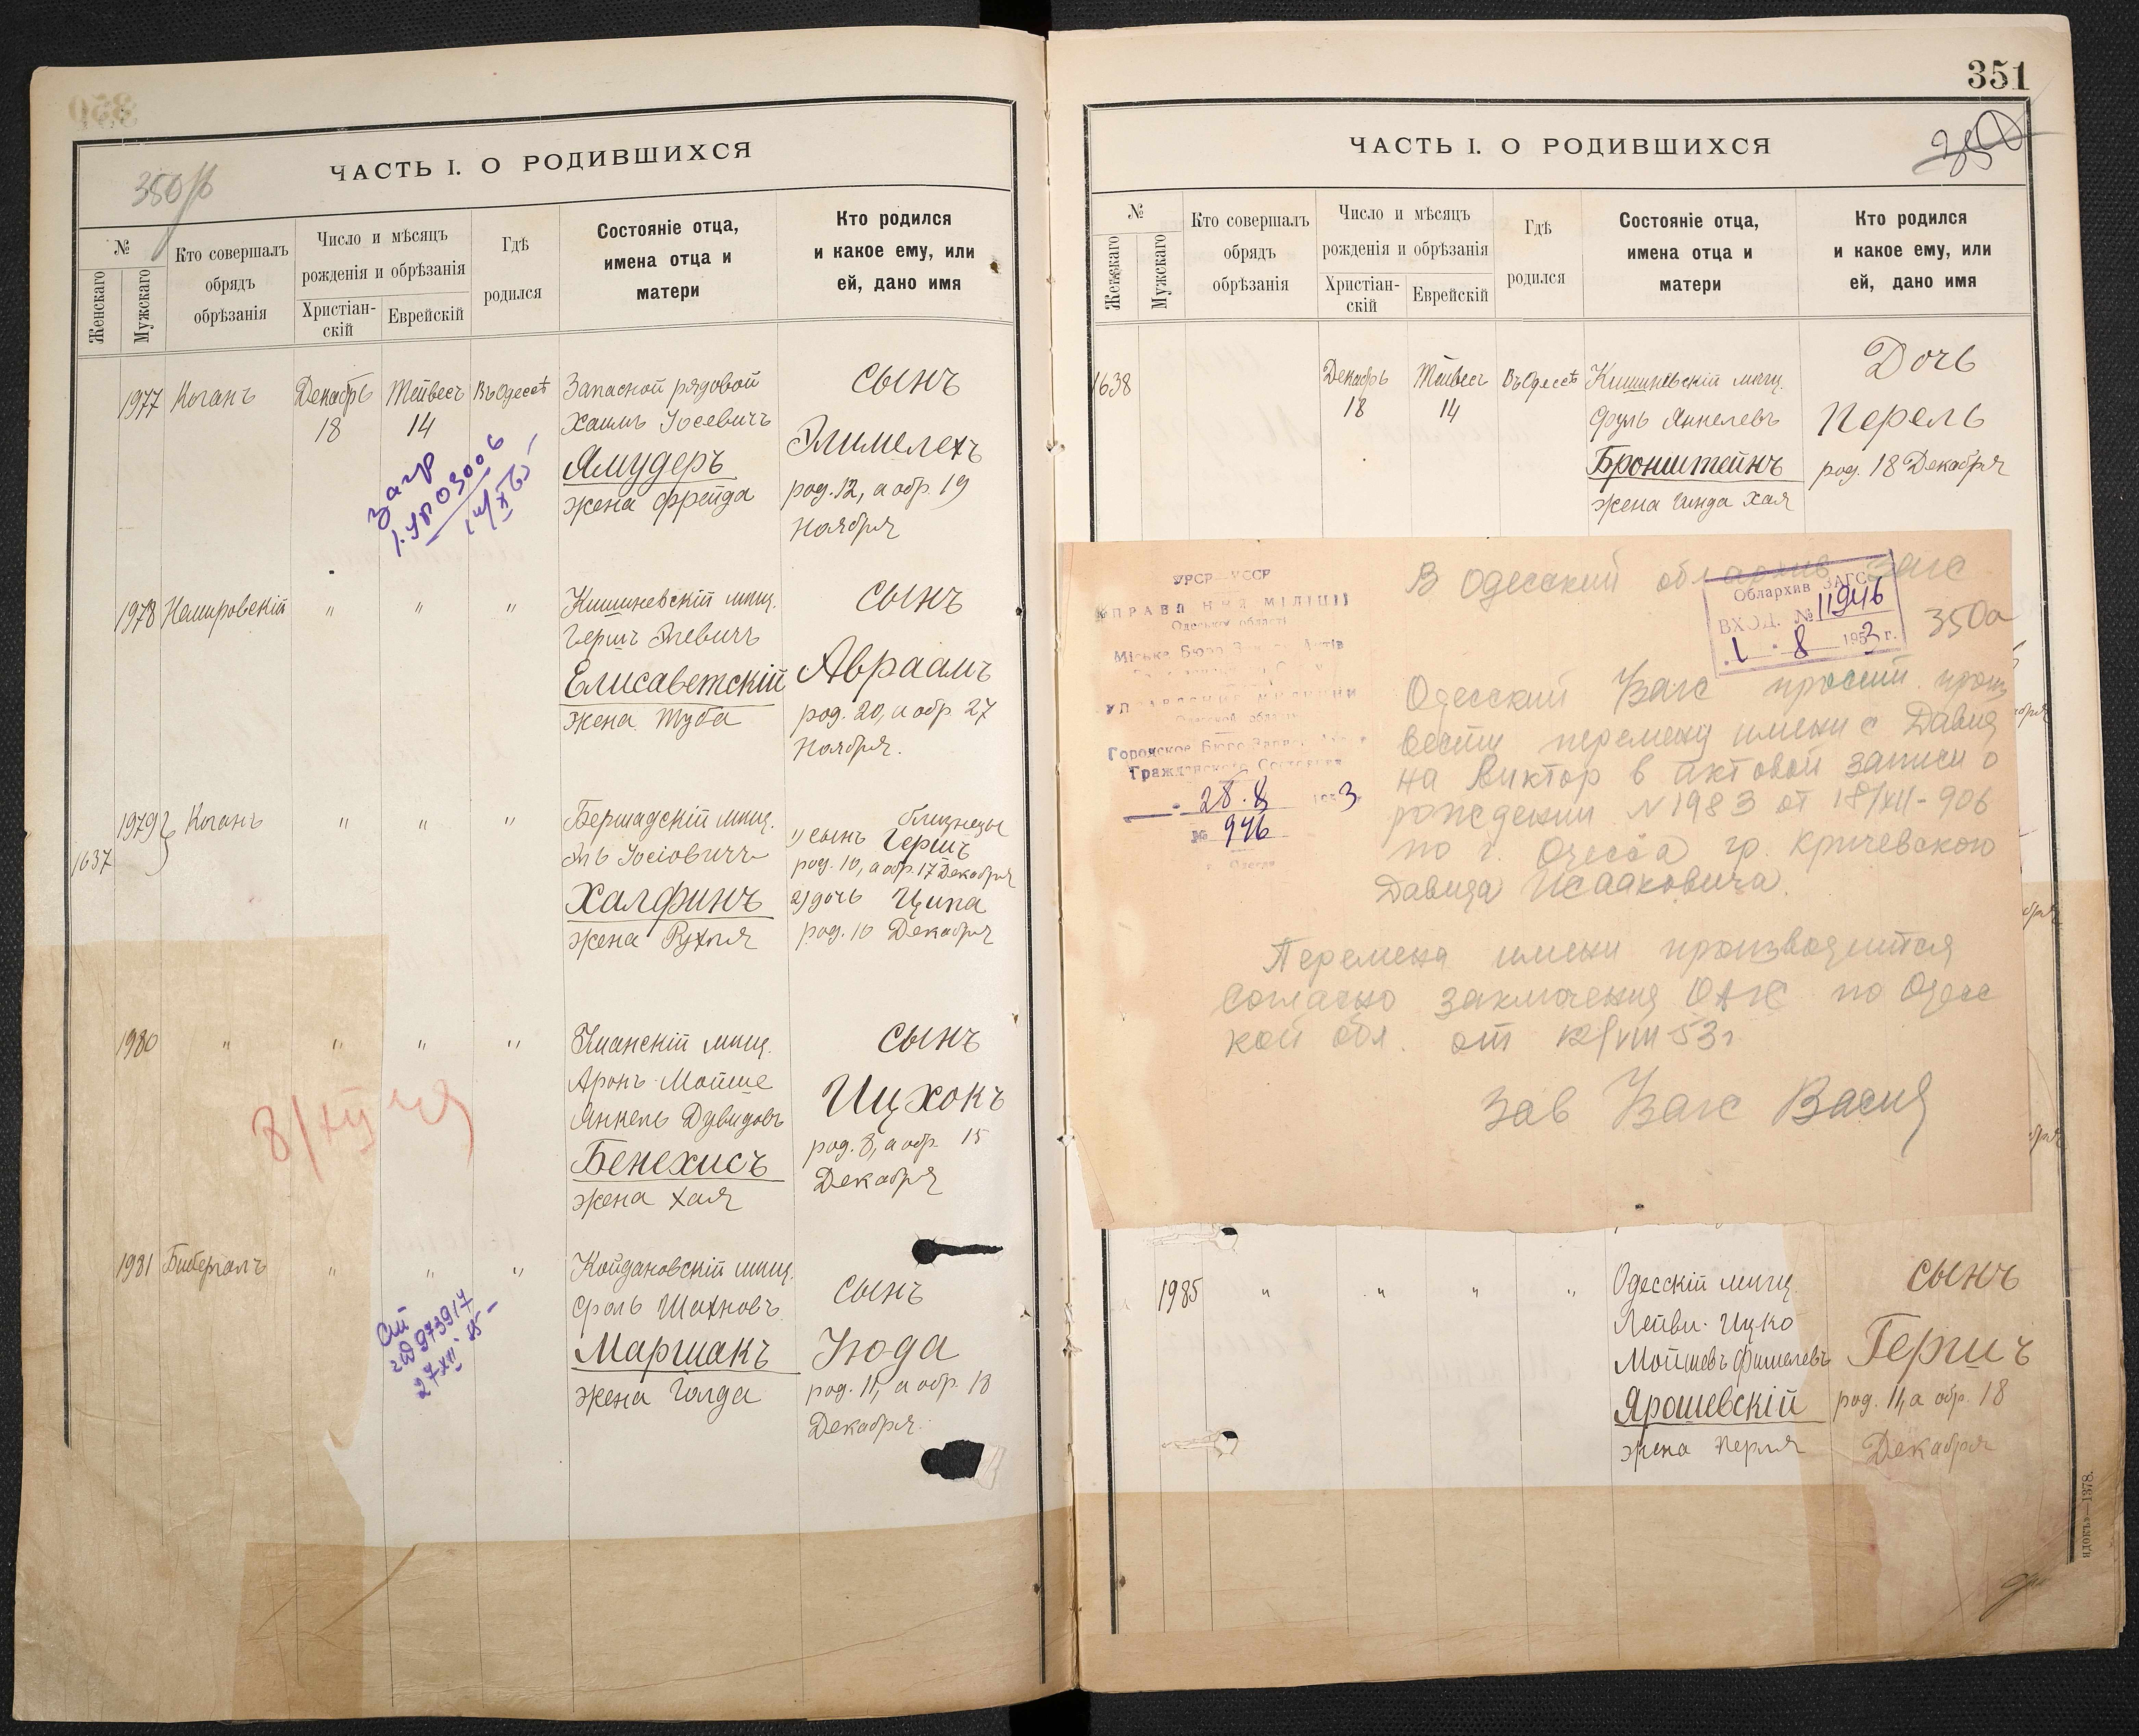 350 об
ЧАСТЬ I. О РОДИВШИХСЯ
№
Женскаго
Мужскаго
Кто совершалъ
обрядъ
обрѣзанія
Число и мѣсяцъ
рожденія и обрѣзанія
Христіан-
скій
Еврейскій
Гдѣ
родился
Состояніе отца,
имена отца и
матери
Кто родился
и какое ему, или
ей, дано имя
1977 Коганъ Декабрь 18 Тейвесъ 14 Въ Одессѣ
Запасной рядовой
Хаимъ Іосевичъ
Ямудеръ
жена Фрейда
сынъ
Элимелехъ
род. 12, а обр. 19
Ноября
1978 Немировскій " " "
Кишиневскій мѣщ.
Гершъ Элевичъ
Елисаветскій
жена Туба
сынъ
Авраамъ
род. 20, а обр. 27
Ноября.
1637 1979 Коганъ " " "
Бершадскій мѣщ.
Эль Іосіовичъ
Халфинъ
жена Рухля
близнецы
1) сынъ Гершъ
род. 10, а обр. 17 Декабря
2) дочь Ципа
род. 10 Декабря
1980 " " " "
мѣщ.
Аронъ-Мойше
Янкель Дувидовъ
Бенехисъ
жена Хая
сынъ
Ицхокъ
род. 8, а обр. 15
Декабря
1981 Бибергалъ " " "
Койдановскій мѣщ.
Фроль Шахновъ
Маршакъ
жена Голда
сынъ
Іюда
род. 11, а обр. 18
Декабря.
351
350
ЧАСТЬ I. О РОДИВШИХСЯ
№
Женскаго
Мужскаго
Кто совершалъ
обрядъ
обрѣзанія
Число и мѣсяцъ
рожденія и обрѣзанія
Христіан-
скій
Еврейскій
Гдѣ
родился
Состояніе отца,
имена отца и
матери
Кто родился
и какое ему, или
ей, дано имя
1638 Декабрь 18 Тейвесъ 14 Въ Одессѣ
Кишиневскій мѣщ.
Сруль Янкелевъ
Бронштейнъ
жена Гинда Хая
Дочь
Перель
род. 18 Декабря
УРСР—УССР
УПРАВЛІННЯ МІЛІЦІЇ
Одеської області
Міське Бюро
УПРАВЛЕНИЕ МИЛИЦИИ
Одесской области
Городское Бюро Записи
Гражданского Состояния
28.8 1953
№ 946
г. Одесса
В Одесский обл архив Загс
Облархив ЗАГС
ВХОД. № 11946
1 8 1953 г.
350а
Одесский Загс просит произ
вести перемену имени с Давид
на Виктор в актовой записи о
рождении N 1983 от 18/XII-906
по г. Одесса гр. Кричевского
Давида Исааковича.
Перемена имени производится
согласно заключения ОАГС по Одесс
кой обл. от 12/VIII-53г
Зав Загс
1985 " " " "
Одесскій мѣщ.
Лейви-Ицко
Мойшевъ Фишелевъ
Ярошевскій
жена Перля
сынъ
Гершъ
род. 11, а обр. 18
Декабря